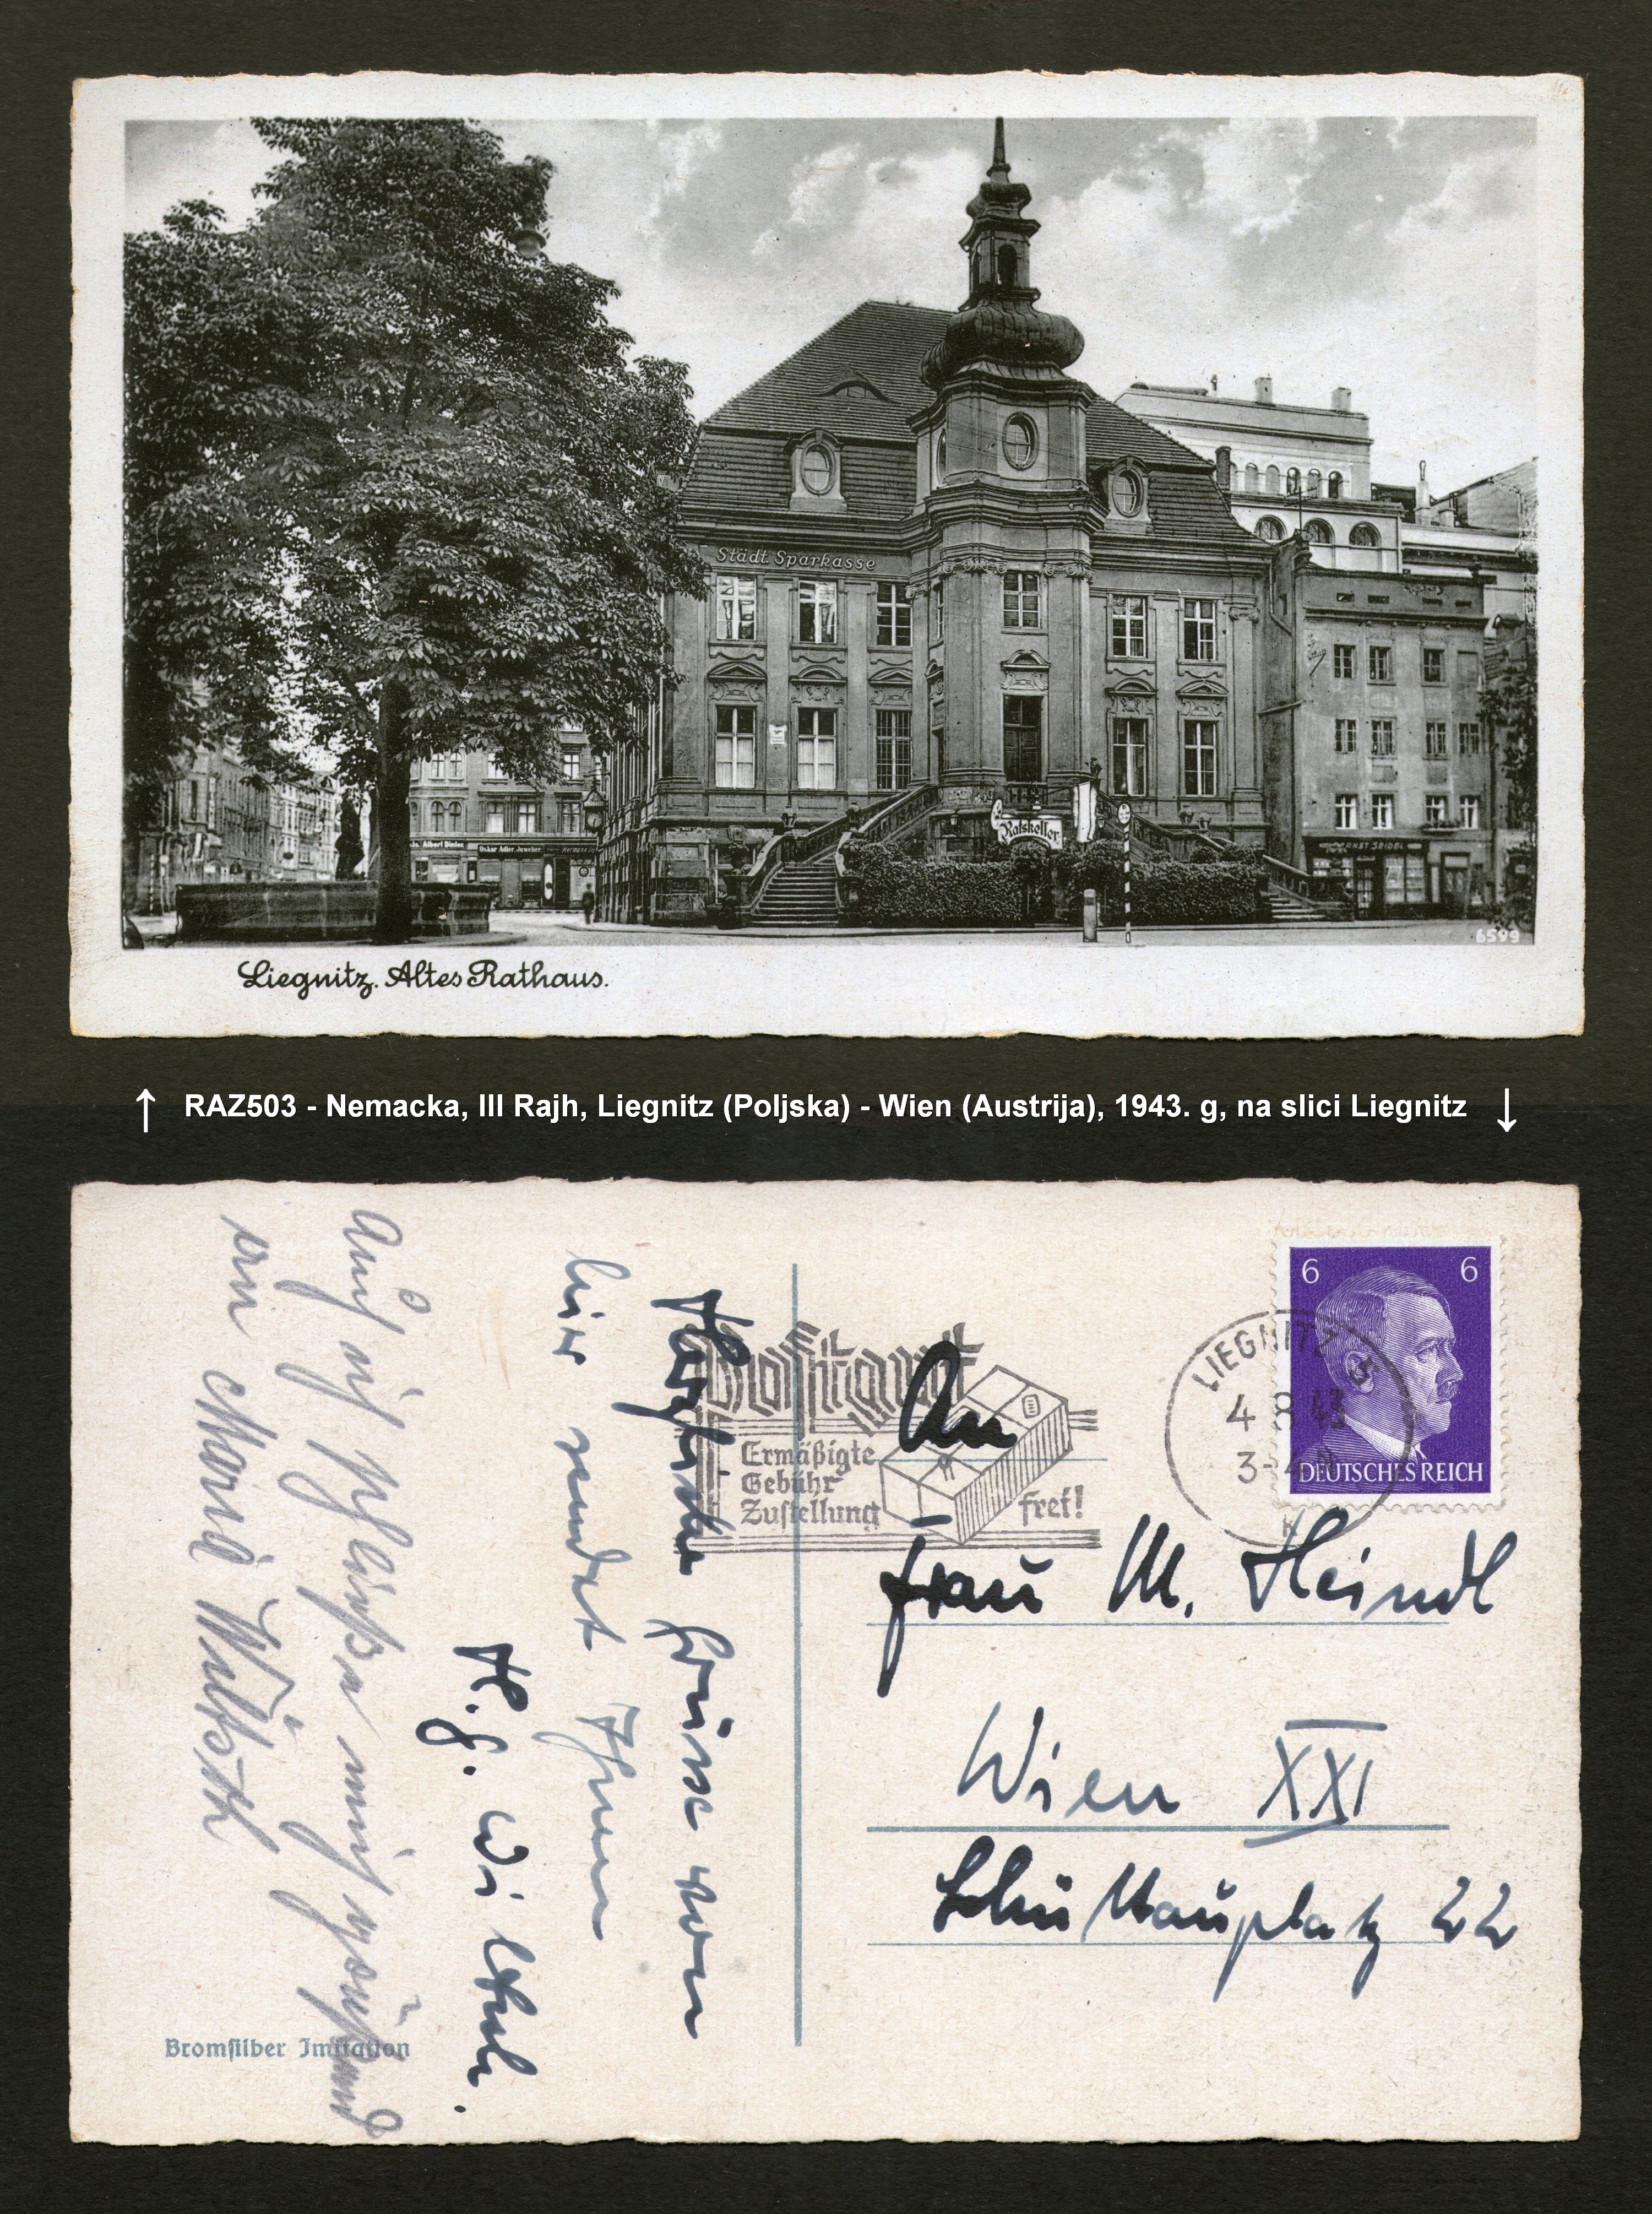 Städt. Sparkasse
Ratskeller
Albert Dinter
Oskar Adler Juwelier
ERNST SEIDEL
6599
Liegnitz. Altes Rathaus.
↑ RAZ503 - Nemacka, III Rajh, Liegnitz (Poljska) - Wien (Austrija), 1943. g, na slici Liegnitz ↓
6 6
DEUTSCHES REICH
LIEGNITZ 5
4 8 43
3-4 N
k
Postgut
Ermäßigte
Gebühr
Zustellung
frei!
An
Frau M. Heindl
Wien XXI
Schüttauplatz 22
Herzliche Grüsse von
hier sendet Ihnen
H. G.
Auch ich
Maria
Bromsilber Imitation